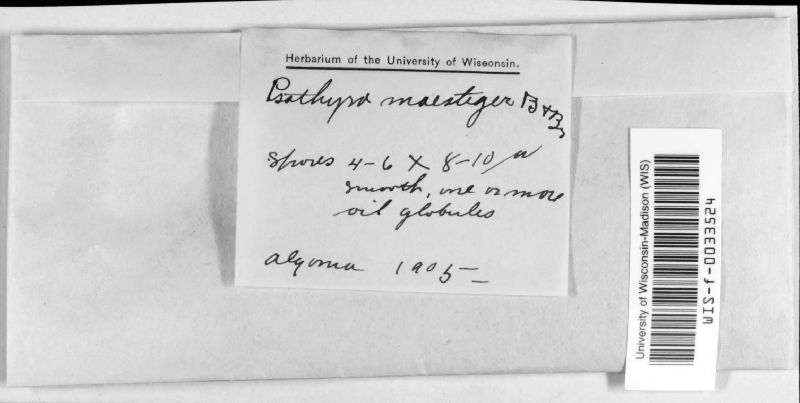 Herbarium of the University of Wisconsin.
Psathyra mastiger B & Br
Spores 4-6 X 8-10 µ
smooth, one or more
oil globules
Algoma 1905
University of Wisconsin-Madison (WIS)
WIS-f-0033524